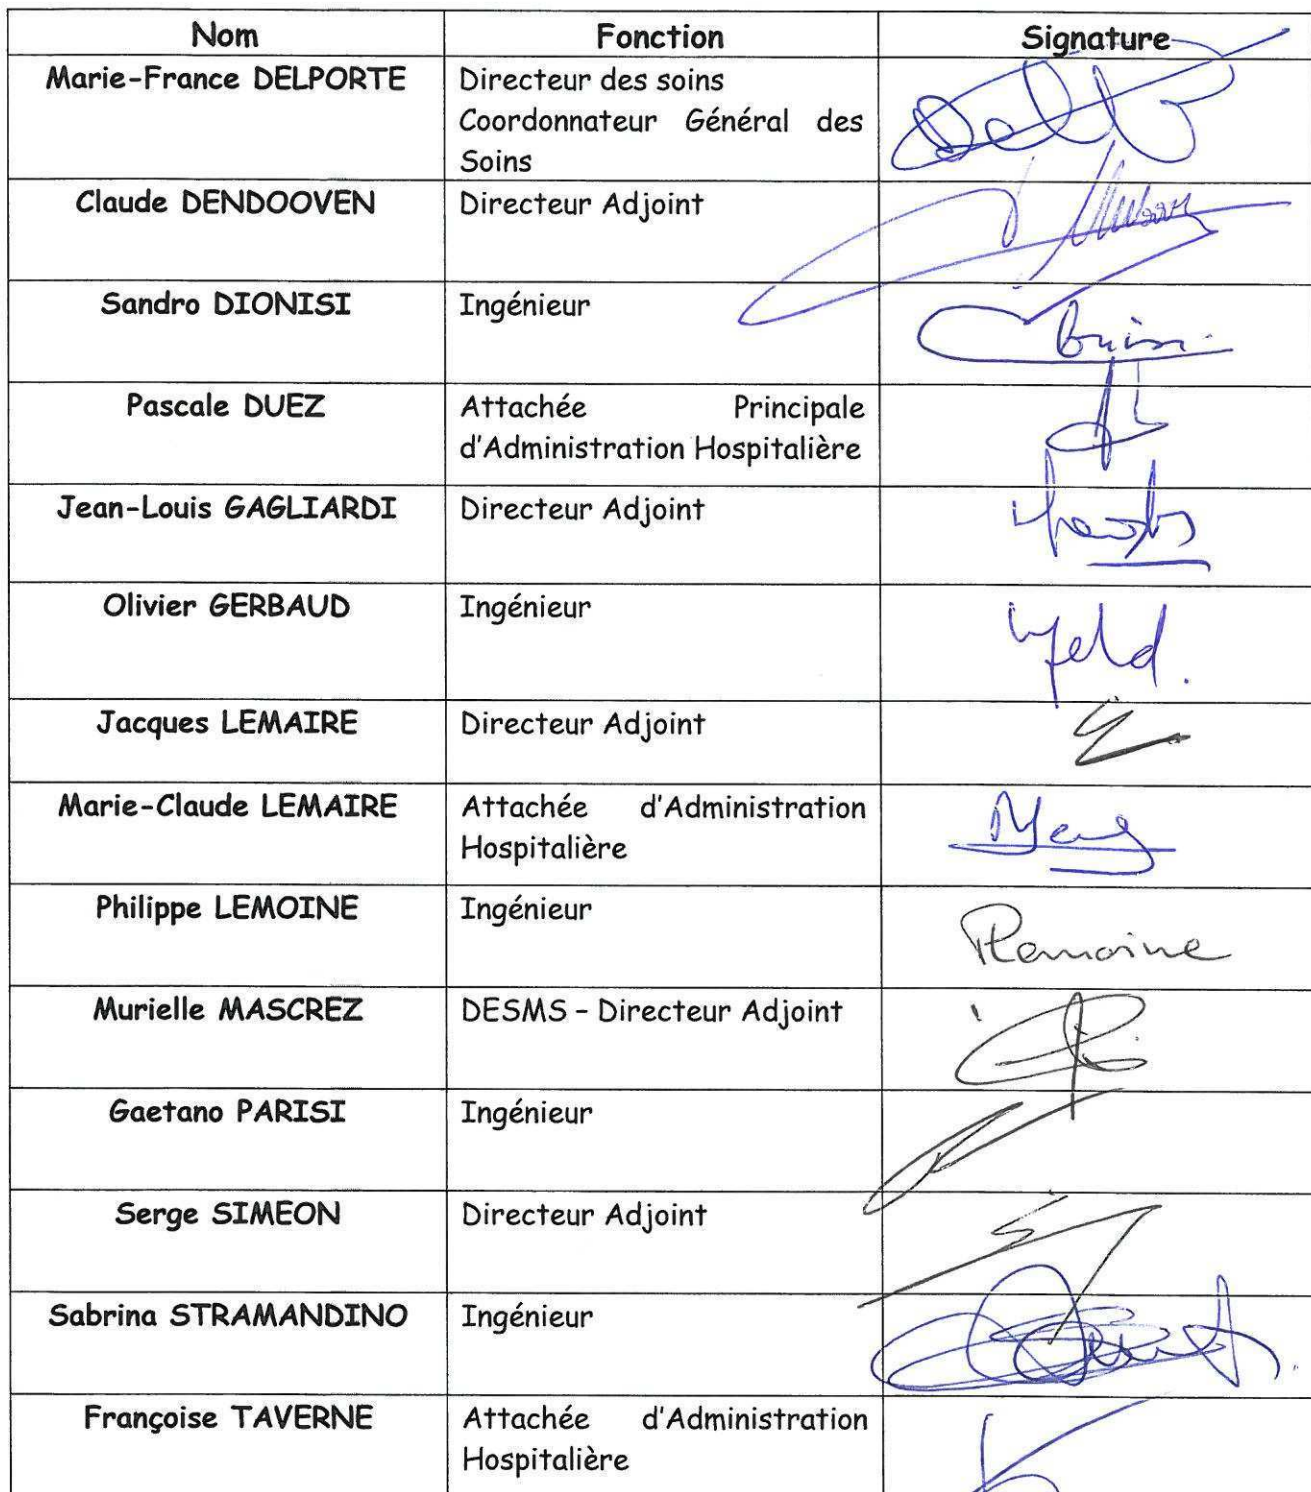 Nom Fonction Signature
Marie-France DELPORTE Directeur des soins
Coordonnateur Général des
Soins
Claude DENDOOVEN Directeur Adjoint
Sandro DIONISI Ingénieur
Pascale DUEZ Attachée Principale
d'Administration Hospitalière
Jean-Louis GAGLIARDI Directeur Adjoint
Olivier GERBAUD Ingénieur
Jacques LEMAIRE Directeur Adjoint
Marie-Claude LEMAIRE Attachée d'Administration
Hospitalière
Philippe LEMOINE Ingénieur
Murielle MASCREZ DESMS – Directeur Adjoint
Gaetano PARISI Ingénieur
Serge SIMEON Directeur Adjoint
Sabrina STRAMANDINO Ingénieur
Françoise TAVERNE Attachée d'Administration
Hospitalière